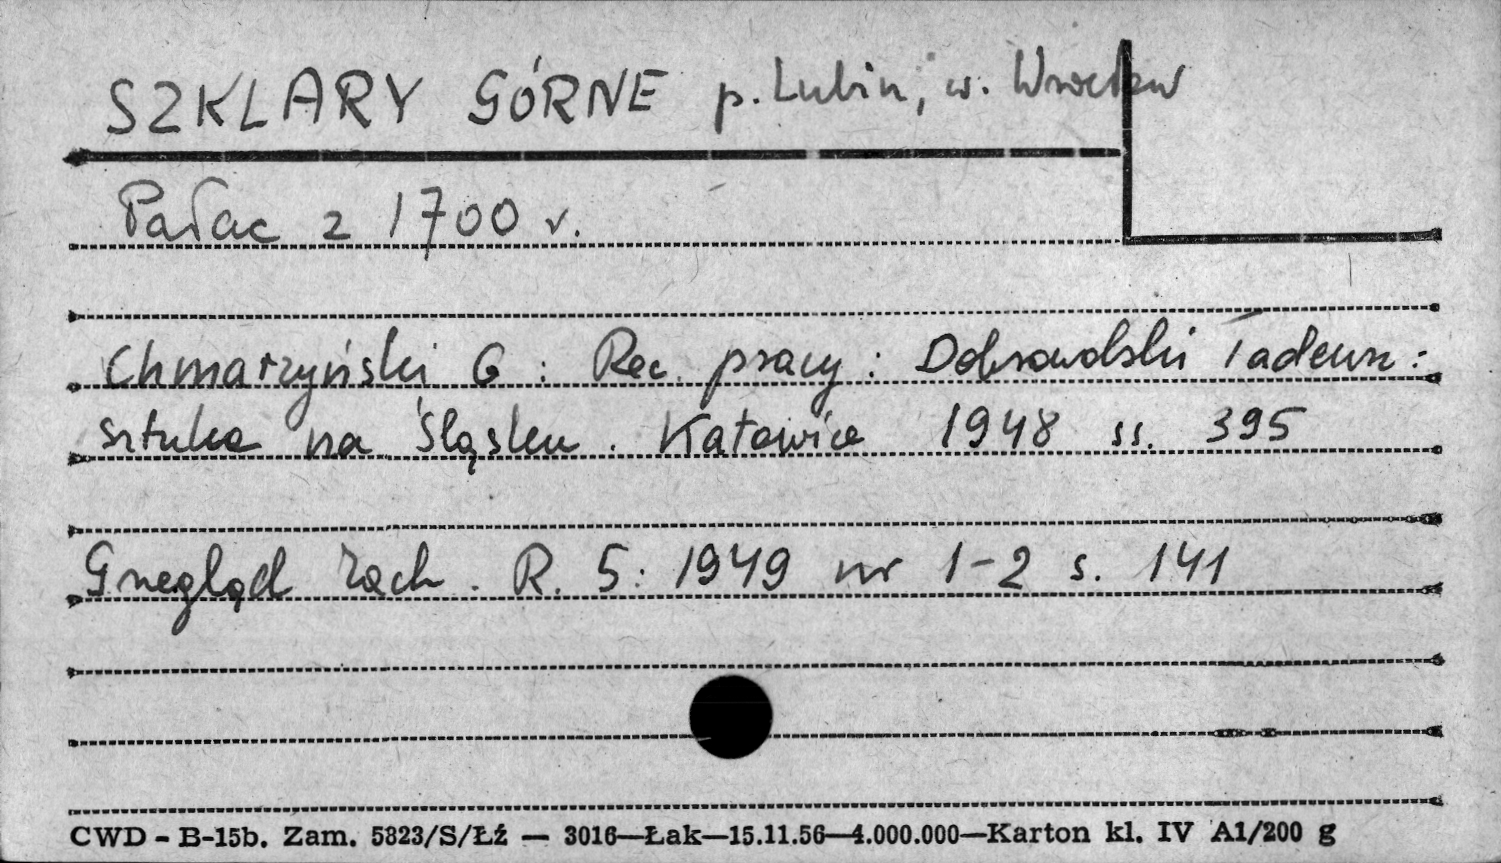 SZKLARY GÓRNE p. Lubin, w. Wrocław
Pałac z 1700 r.
Chmarzyński G : Rec. pracy : Dobrowolski Tadeusz :
Sztuka na Śląsku. Katowice 1948 ss. 395
Przegląd Zach. R. 5: 1949 nr 1-2 s. 141
CWD - B-15b. Zam. 5823/S/ŁŹ — 3016—Łak—15.11.56—4.000.000—Karton kl. IV A1/200 g